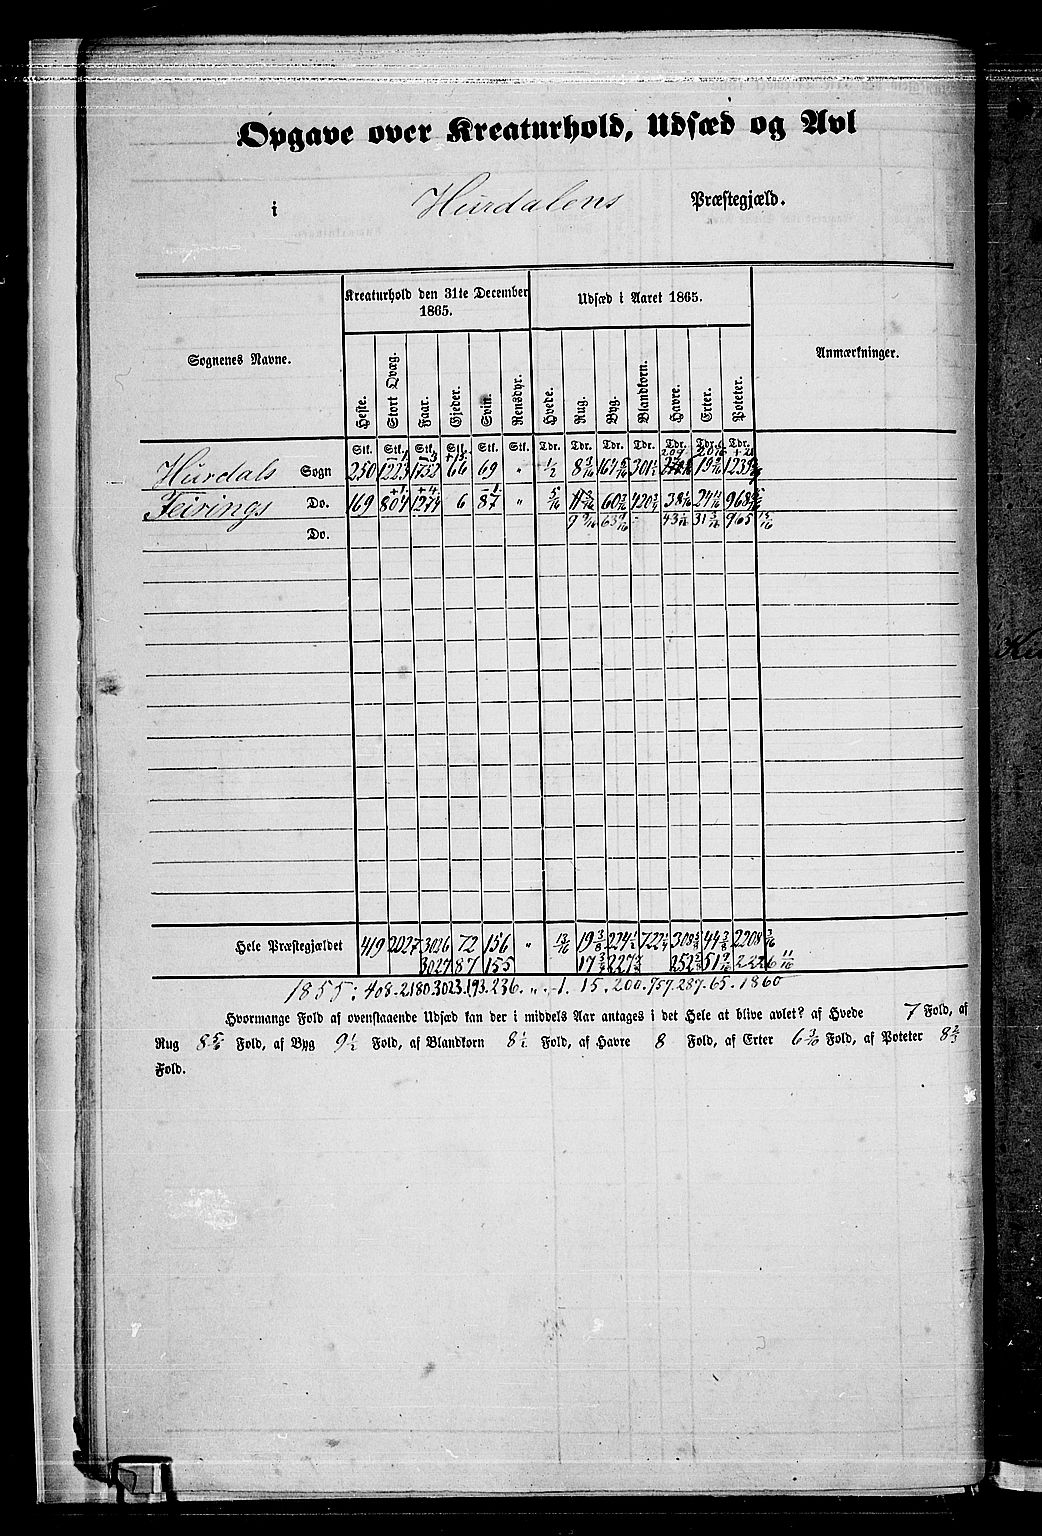 Opgave over Kreaturhold, Udsæd og Avl
i Hurdalens Præstegjæld.
Sognenes Navne.
Kreaturhold den 31te December 1865.
Udsæd i Aaret 1865.
Anmærkninger.
Heste. Stort Qvæg. Faar. Gjeder. Svin. Rensdyr. Hvede. Rug. Byg. Blandkorn. Havre. Erter. Poteter.
Stk. Stk. Stk. Stk. Stk. Stk. Tdr. Tdr. Tdr. Tdr. Tdr. Tdr. Tdr.
-1 -3 +15 207 20 +21
Hurdals Sogn 250 1223 1752 66 69 " 1/2 8 3/16 301 1/2 19
+1 +4 1
Feirings Do. 169 804 1274 6 87 " 5/16 60 420 3/4 38 1/16 24 11/16 968
Do. 9 9/16 63 9/16 43 31 965 15/16
Hele Præstegjældet 419 2027 3026 72 156 " 13/16 19 3/8 224 1/2 722 1/4 308 44 3/8 2208 3/16
3027 87 155 17 3/4 227 3/4 252 51 9/16 2226 11/16
1855: 408. 2180. 3023. 193. 236. " . 1. 15. 200. 757. 287. 65. 1860
Hvormange Fold af ovenstaaende Udsæd kan der i middels Aar antages i det Hele at blive avlet? af Hvede 7 Fold, af
Rug 8 5/6 Fold, af Byg 9 1/2 Fold, af Blandkorn 8 1/2 Fold, af Havre 8 Fold, af Erter 6 3/10 Fold, af Poteter 8 2/3
Fold.